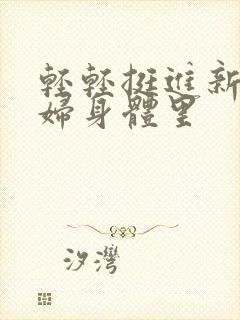 輕輕挺進新
婦身體里
汐灣